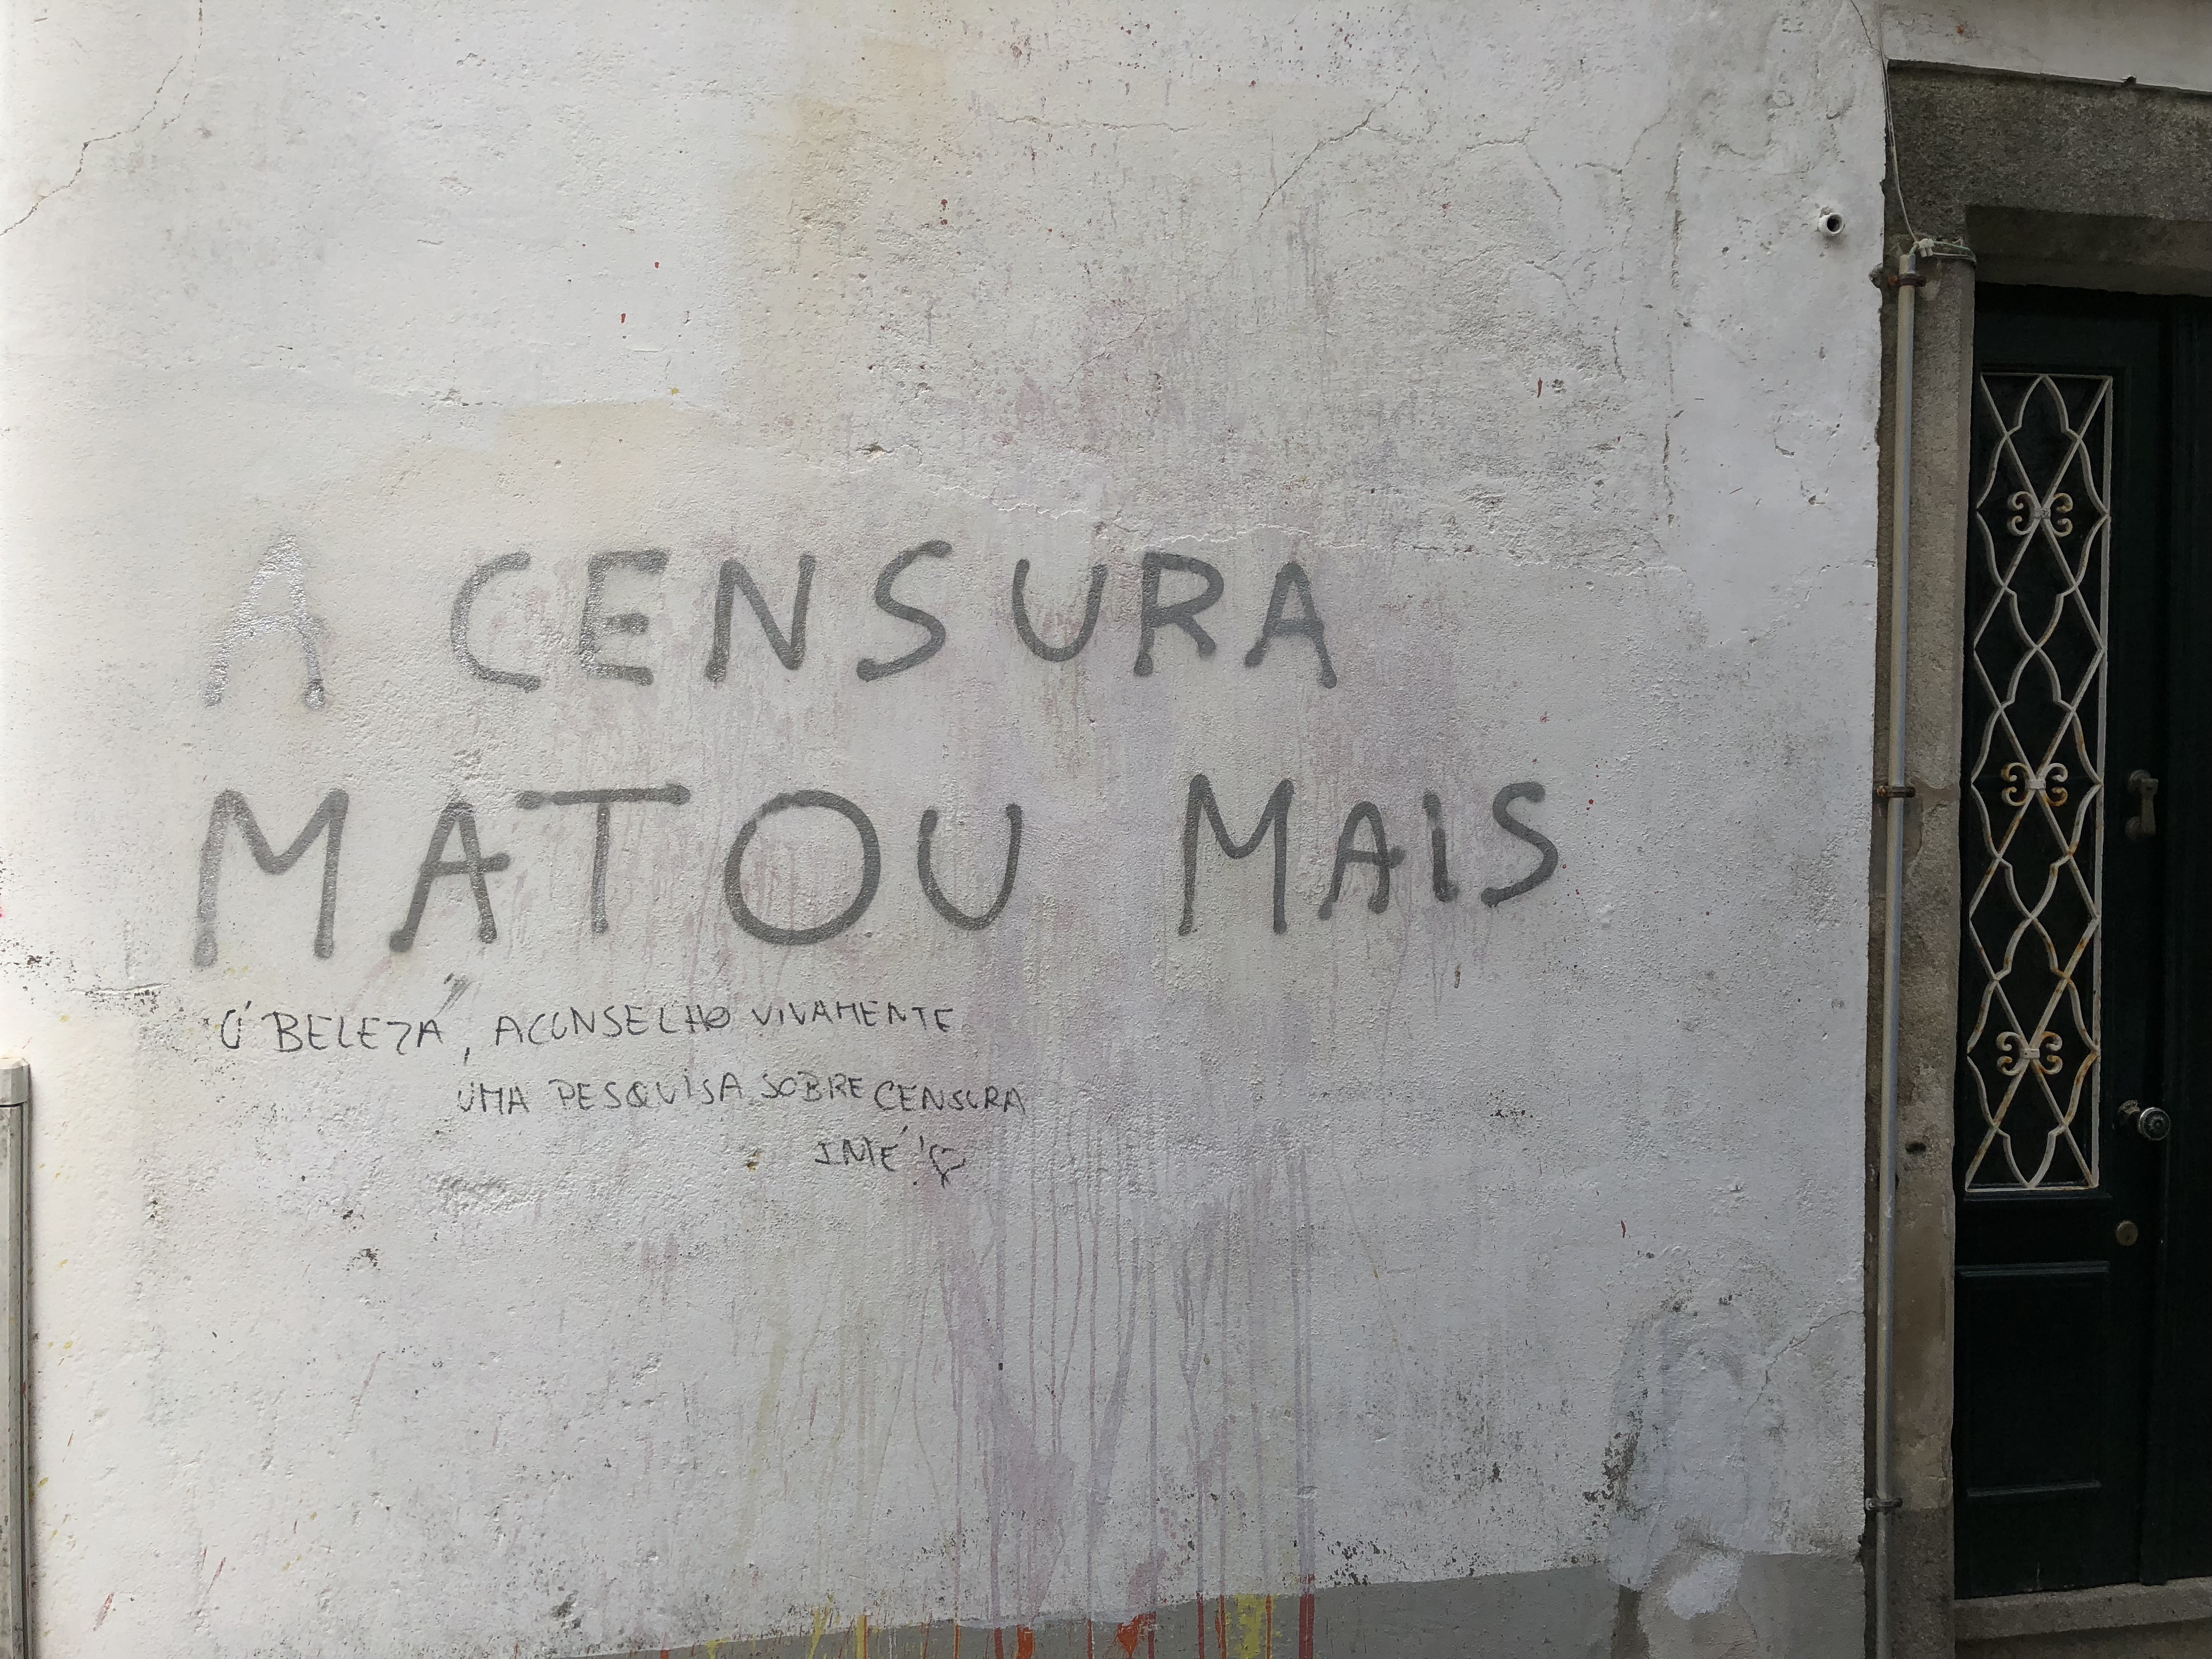 A CENSURA
MATOU MAIS
Ó BELEZA, ACONSELHO VIVAMENTE
UMA PESQUISA SOBRE CENSURA